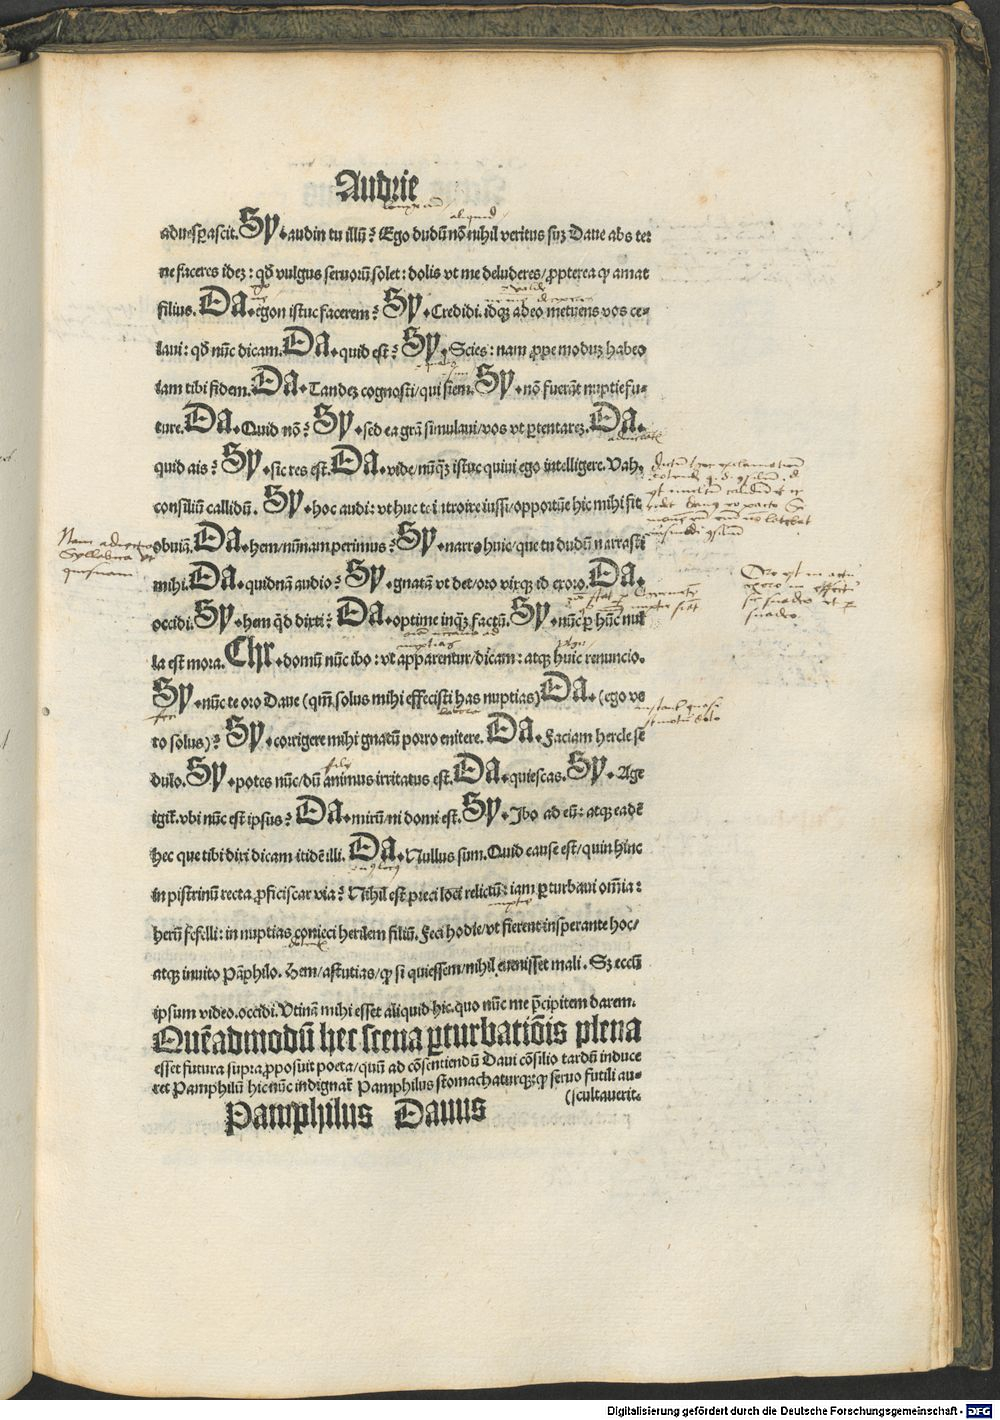 Andrie
aduesꝑascit. Sy. audin tu illū? Ego dudū nō nihil veritus suȝ Daue abs te:
ne faceres ideȝ: qđ vulgus seruorū solet: dolis vt me deluderes/ ꝓpterea ꝙ amat
filius. Da. egon istuc facerem? Sy. Credidi. idqȝ adeo metuens vos ce-
laui: qđ nūc dicam. Da. quid est? Sy. Scies: nam ꝓpe moduȝ habeo
iam tibi fidem. Da. Tandeȝ cognosti/ qui siem. Sy. nō fuerāt nuptie fu-
ture. Da. Quid nō? Sy. sed ea grā simulaui/ vos vt ꝑtentareȝ. Da.
quid ais? Sy. sic res est. Da. vide/ nūqȝ istuc quiui ego intelligere. Vah,
consiliū callidū. Sy. hoc audi: vt huc te introire iussi/ opportūe hic mihi fit
Nam aduerbio
syllabica vt
quisnam
obuiā. Da. hem/ nūnam perimus? Sy. narro huic/ que tu dudū narrasti
mihi. Da. quidnā audio? Sy. gnatā vt det/ oro vixqȝ id exoro. Da.
occidi. Sy. hem qđ dixti? Da. optime inqȝ factū. Sy. nūc ꝑ hūc nul
la est mora. Chr. domū nūc ibo: vt apparentur/ dicam: atqȝ huic renuncio.
Sy. nūc te oro Daue (qm̄ solus mihi effecisti has nuptias) Da. (ego ve
ro solus)? Sy. corrigere mihi gnatū porro enitere. Da. Faciam hercle se
dulo. Sy. potes nūc/ dū animus irritatus est. Da. quiescas. Sy. Age
igit̄. vbi nūc est ipsus? Da. mirū/ ni domi est. Sy. Ibo ad eū: atqȝ eadē
hec que tibi dixi dicam itidē illi. Da. Nullus sum. Quid cause est/ quin hinc
in pistrinū recta ꝓficiscar via? Nihil est p̄eci loci relictū: iam ꝑturbaui om̄ia:
herū fefelli: in nuptias conieci herilem filiū. Feci hodie/ vt fierent insperante hoc/
atqȝ inuito Pāphilo. Hem/ astutias/ ꝙ si quiessem/ nihil euenisset mali. Sȝ eccū
ipsum video. occidi. Vtinā mihi esset aliquid hic. quo nūc me p̄cipitem darem.
Quēadmodū hec scena ꝑturbatiōis plena
esset futura supra ꝓposuit poeta/ quū ad cōsentiendū Daui cōsilio tardū induce
ret Pamphilū hic nūc indignat̄ Pamphilus stomachaturqȝ ꝙ seruo futili au-
(scultauerit.
Pamphilus Dauus
Digitalisierung gefördert durch die Deutsche Forschungsgemeinschaft - DFG